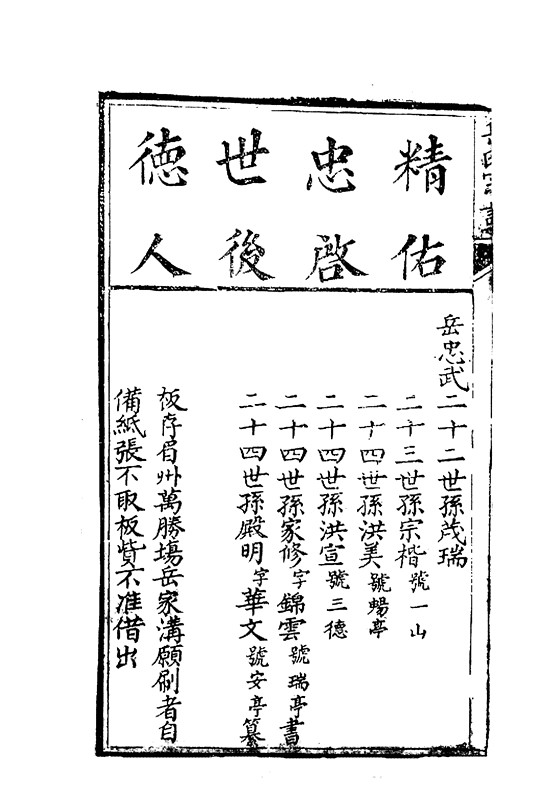 精忠世德
佑啓後人
岳忠武
二十二世孫茂瑞
二十三世孫宗楷號一山
二十四世孫洪美號蝪亭
二十四世孫洪宣號三德
二十四世孫家修字錦雲號瑞亭書
二十四世孫殿明字華文號安亭纂
板存眉州萬勝塲岳家溝願刷者自
備紙張不取板貲不准借出